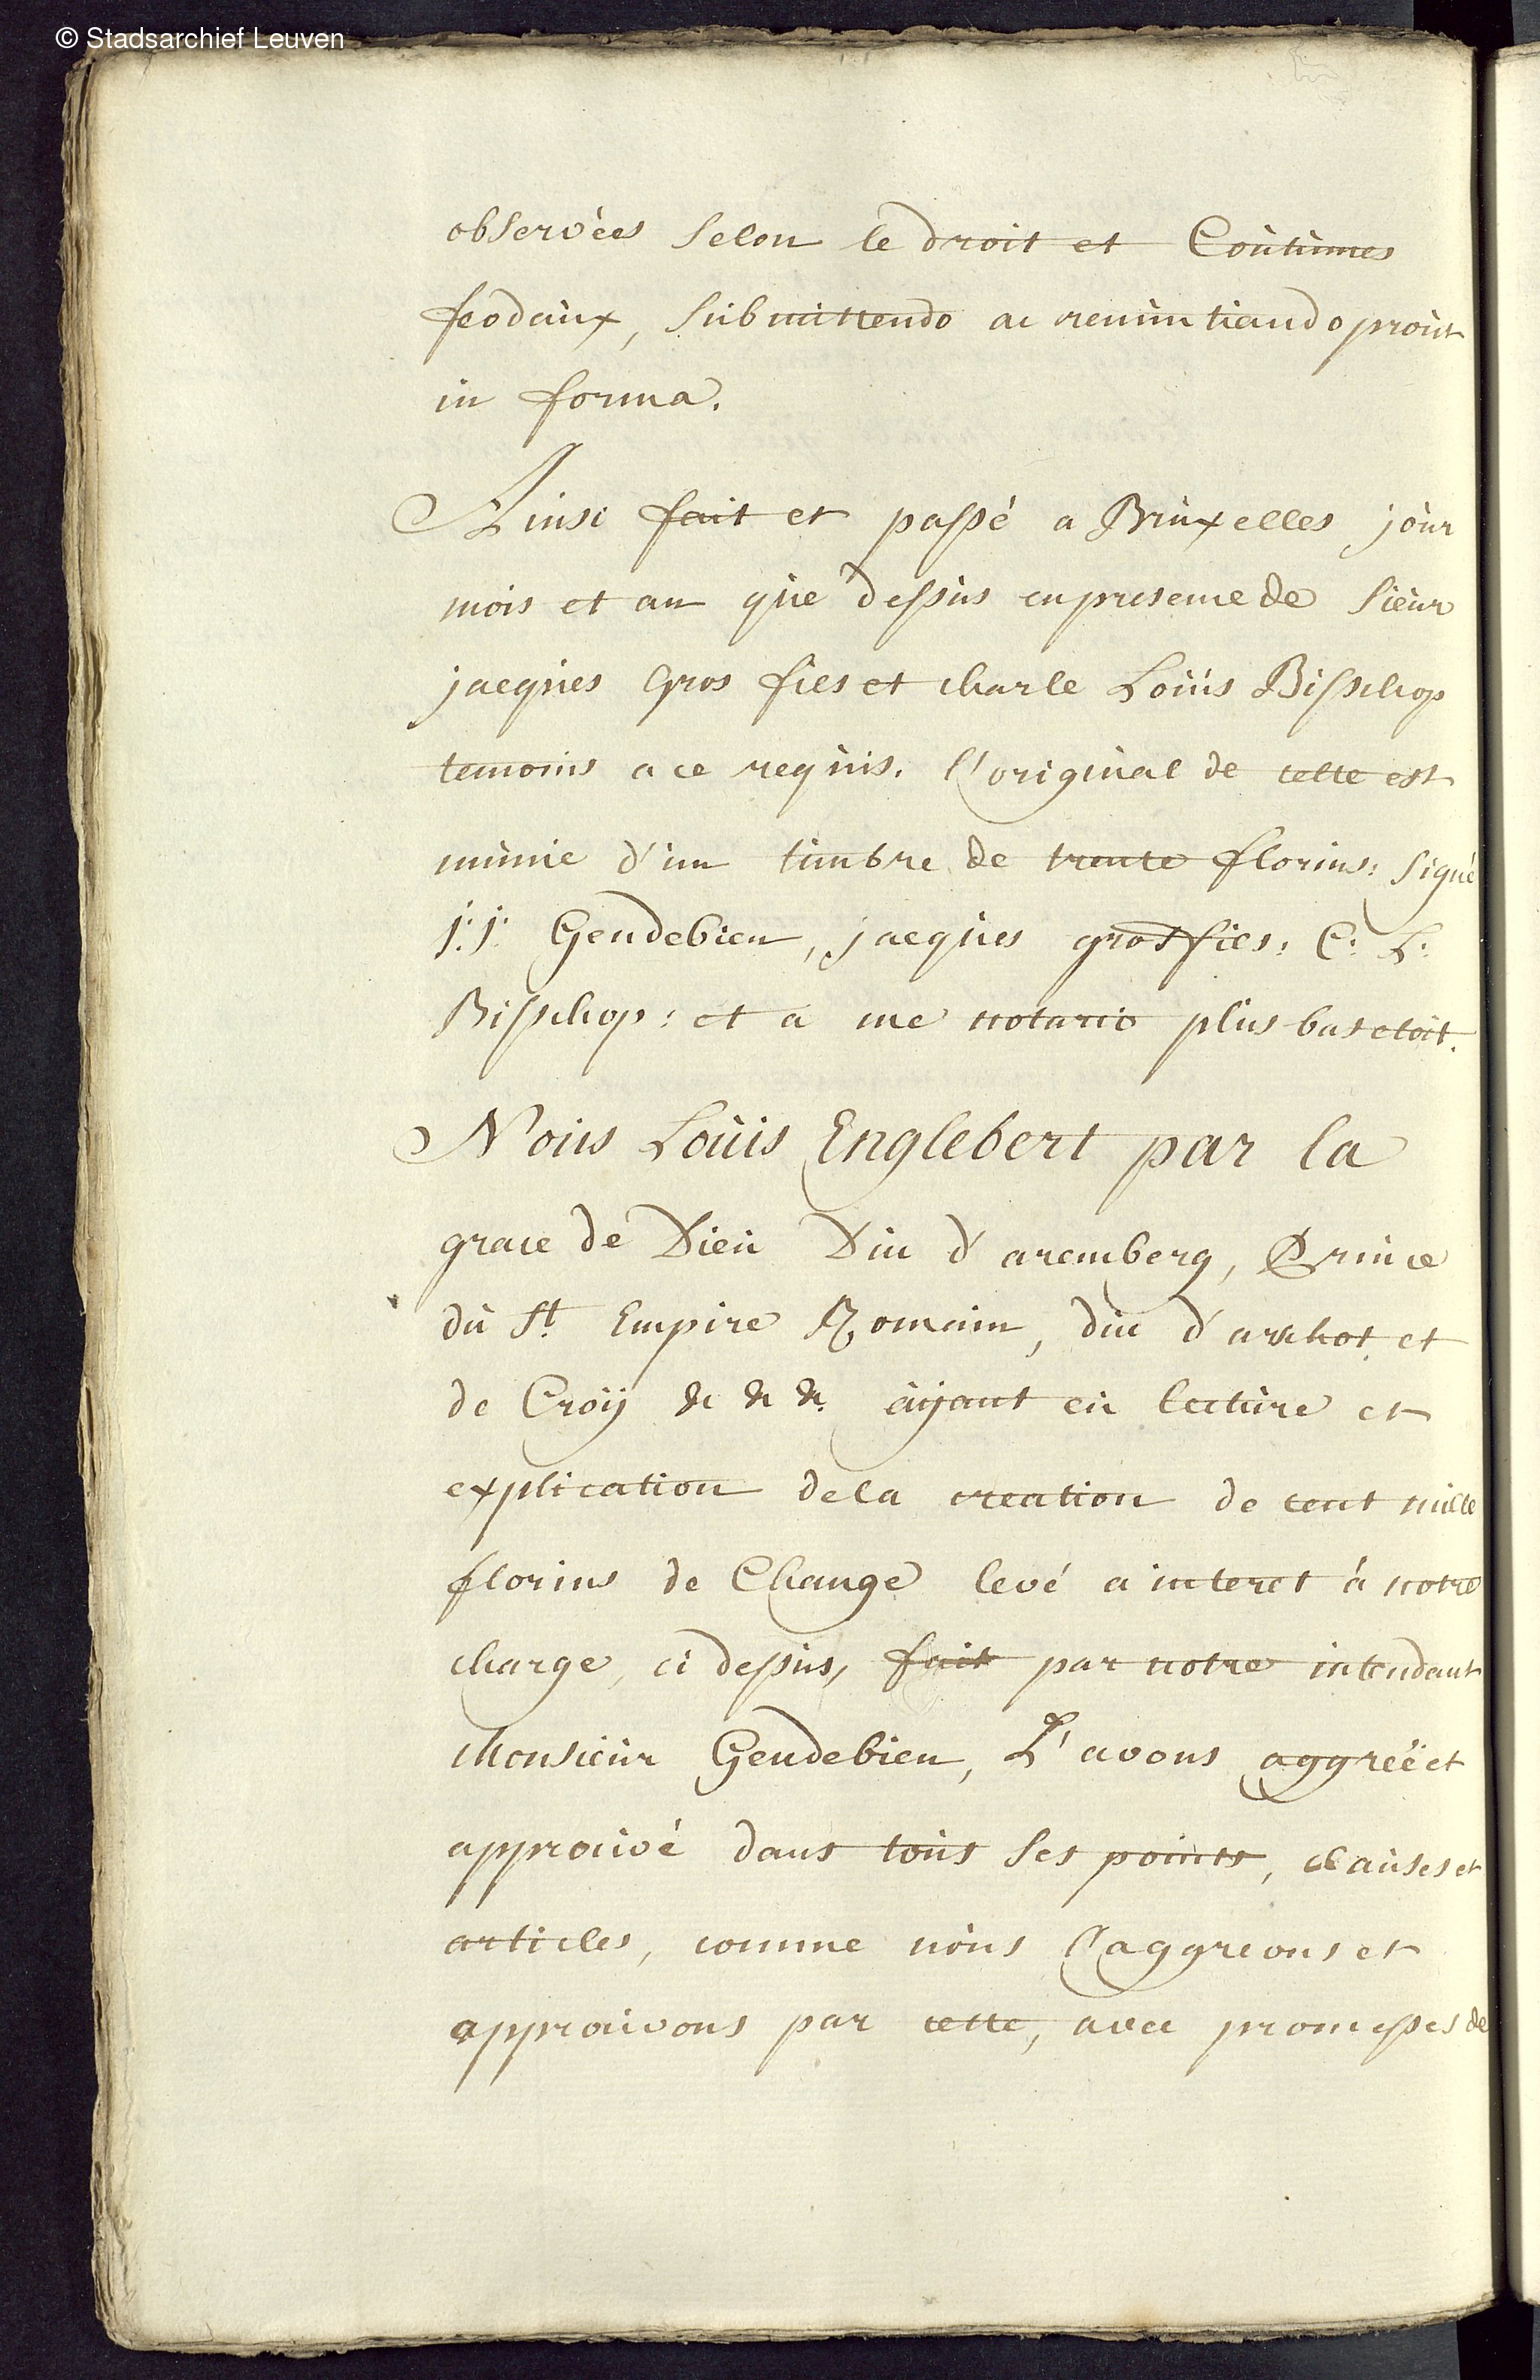 © Stadsarchief Leuven
observèes selon le droit et Coùtùmes
feodaùx, sùbmittendo ac renùntiando proùt
in forma.
Ainsi fait et passé a Brùxelles joùr
mois et an qùe dessùs en presence de sieùr
jacqùes Gros fils et charle Loùis Bisschop
temoins a ce reqùis. l'original de cette est
mùnie d'ùn timbre de trente florins: signé
J: J: Gendebien, jacqùes grosfils: C: L:
Bisschop: et a me notario plùs bas etoit.
Noùs Loùis Englebert par la
grace de Dieù Dùc d'aremberg, Prince
dù St. Empire Romain, dùc d'arschot et
de Croÿ &c &c &c. aÿant eù lectùre et
explication de la creation de cent mille
florins de Change levé a interet à notre
charge, ci dessùs, fait par notre intendant
Monsieùr Gendebien, L'avons aggréé et
approùvé dans toùs ses points, claùses et
articles, comme noùs l'aggreons et
approùvons par cette, avec promesses de